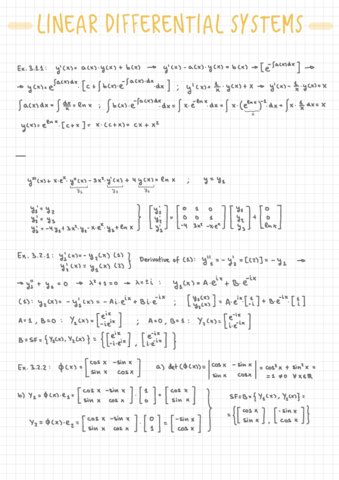 LINEAR DIFFERENTIAL SYSTEMS
Ex. 3.1.1: y'(x) = a(x)·y(x) + b(x) → y'(x) - a(x)·y(x) = b(x) → [e^{-∫a(x)dx}] →
→ y(x) = e^{∫a(x)dx}·[c + ∫b(x)·e^{-∫a(x)dx}·dx] ; y'(x) = 1/x·y(x) + x → y'(x) - 1/x·y(x) = x
∫a(x)dx = ∫dx/x = ln x ; ∫b(x)·e^{-∫a(x)dx}·dx = ∫x·e^{-ln x}·dx = ∫x·(e^{ln x})^{-1}·dx = ∫x·1/x·dx = x
y(x) = e^{ln x}[c + x] = x·(c + x) = cx + x²
—
y'''(x) + x·e^x·y''(x) - 3x²·y'(x) + 4y(x) = ln x ; y = y₁
y₁' = y₂
y₂' = y₃
y₃' = -4y₁ + 3x²·y₂ - x·e^x·y₃ + ln x } [y₁' y₂' y₃'] = [0 1 0; 0 0 1; -4 3x² -x·e^x] [y₁ y₂ y₃] + [0 0 ln x]
Ex. 3.2.1: y₁'(x) = -y₂(x) (1)
y₂'(x) = y₁(x) (2) } Derivative of (1): y₁'' = -y₂'(x) = [(2)] = -y₁ →
→ y₁'' + y₁ = 0 → λ² + 1 = 0 → λ = ±i : y₁(x) = A·e^{ix} + B·e^{-ix}
(1): y₂(x) = -y₁'(x) = -Ai·e^{ix} + Bi·e^{-ix} ; [y₁(x) y₂(x)] = A·e^{ix}[1 -i] + B·e^{-ix}[1 i]
A = 1, B = 0 : Y₁(x) = [e^{ix} -i·e^{ix}] ; A = 0, B = 1 : Y₂(x) = [e^{-ix} i·e^{-ix}]
B = SF = {Y₁(x), Y₂(x)} = {[e^{ix} -i·e^{ix}], [e^{-ix} i·e^{-ix}]}
Ex. 3.2.2: ϕ(x) = [cos x -sin x; sin x cos x] a) det(ϕ(x)) = |cos x -sin x; sin x cos x| = cos²x + sin²x =
= 1 ≠ 0 ∀x∈ℝ
b) Y₁ = ϕ(x)·e₁ = [cos x -sin x; sin x cos x]·[1 0] = [cos x sin x] SF = B = {Y₁(x), Y₂(x)} =
Y₂ = ϕ(x)·e₂ = [cos x -sin x; sin x cos x]·[0 1] = [-sin x cos x] = {[cos x sin x], [-sin x cos x]}